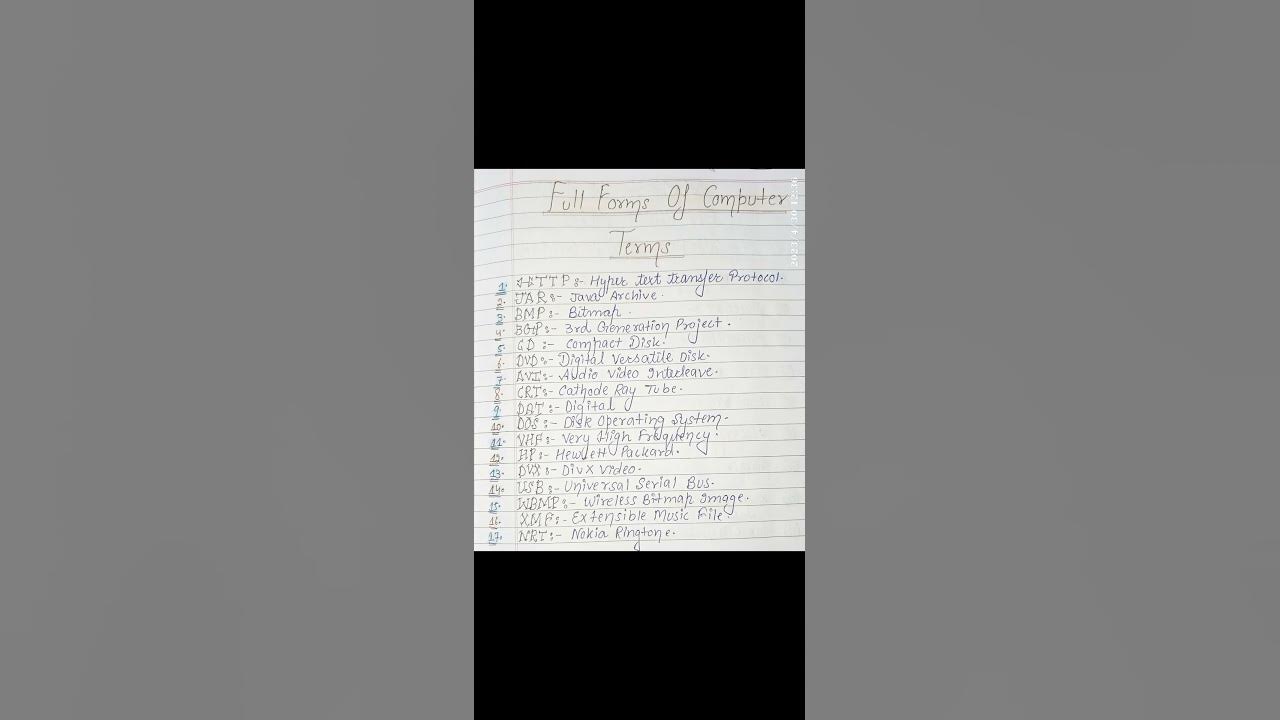 Full Forms Of Computer
Terms
1. HTTP:- Hyper text transfer Protocol.
2. JAR:- Java Archive.
3. BMP:- Bitmap.
4. 3GP:- 3rd Generation Project.
5. CD:- Compact Disk.
6. DVD:- Digital Versatile Disk.
7. AVI:- Audio Video Interleave.
8. CRT:- Cathode Ray Tube.
9. DAT:- Digital
10. DOS:- Disk Operating System.
11. VHF:- Very High Frequency.
12. HP:- Hewlett Packard.
13. DVX:- DivX Video.
14. USB:- Universal Serial Bus.
15. WBMP:- Wireless Bitmap Image.
16. XMF:- Extensible Music File.
17. NRT:- Nokia Ringtone.